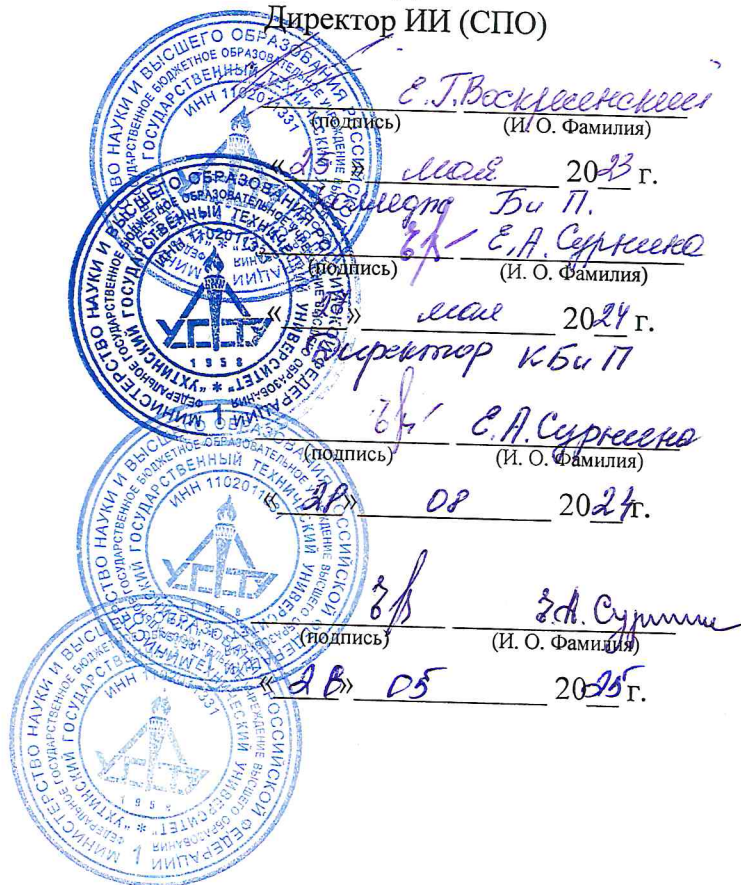 Директор ИИ (СПО)
Е. Г. Воскресенский
(подпись) (И. О. Фамилия)
« 25 » мая 2023 г.
колледжа БиП.
Е. А. Суркина
(подпись) (И. О. Фамилия)
« » мая 2024 г.
Директор КБиП
Е. А. Суркина
(подпись) (И. О. Фамилия)
« 28 » 08 2024 г.
(подпись) (И. О. Фамилия)
« 28 » 05 2025 г.
МИНИСТЕРСТВО НАУКИ И ВЫСШЕГО ОБРАЗОВАНИЯ РОССИЙСКОЙ ФЕДЕРАЦИИ
ФЕДЕРАЛЬНОЕ ГОСУДАРСТВЕННОЕ БЮДЖЕТНОЕ ОБРАЗОВАТЕЛЬНОЕ УЧРЕЖДЕНИЕ ВЫСШЕГО ОБРАЗОВАНИЯ
"УХТИНСКИЙ ГОСУДАРСТВЕННЫЙ ТЕХНИЧЕСКИЙ УНИВЕРСИТЕТ"
ИНН 1102011331
УГТУ
1958
1